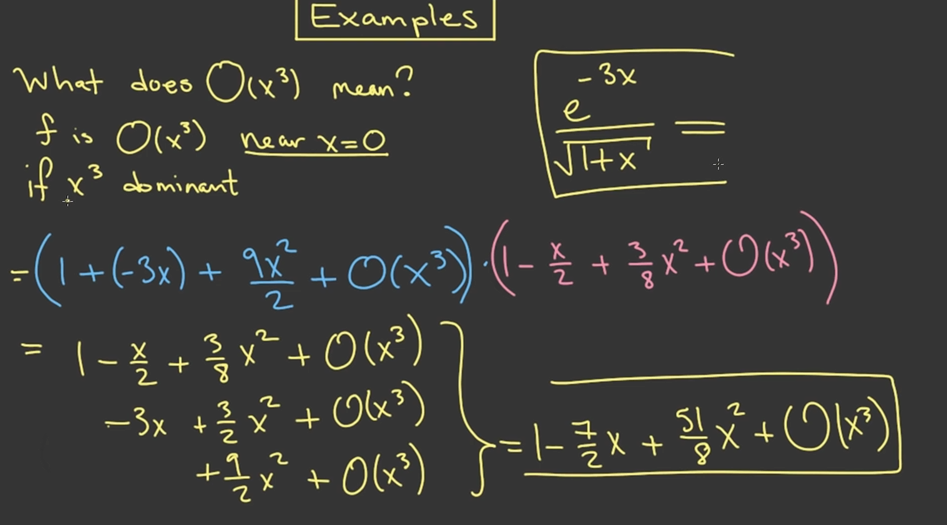 Examples
What does O(x³) mean?
f is O(x³) near x=0
if x³ dominant
e^(-3x)/√(1+x) =
= (1 + (-3x) + 9x²/2 + O(x³)) · (1 - x/2 + 3/8 x² + O(x³))
= 1 - x/2 + 3/8 x² + O(x³)
-3x + 3/2 x² + O(x³)
+ 9/2 x² + O(x³)
= 1 - 7/2 x + 51/8 x² + O(x³)